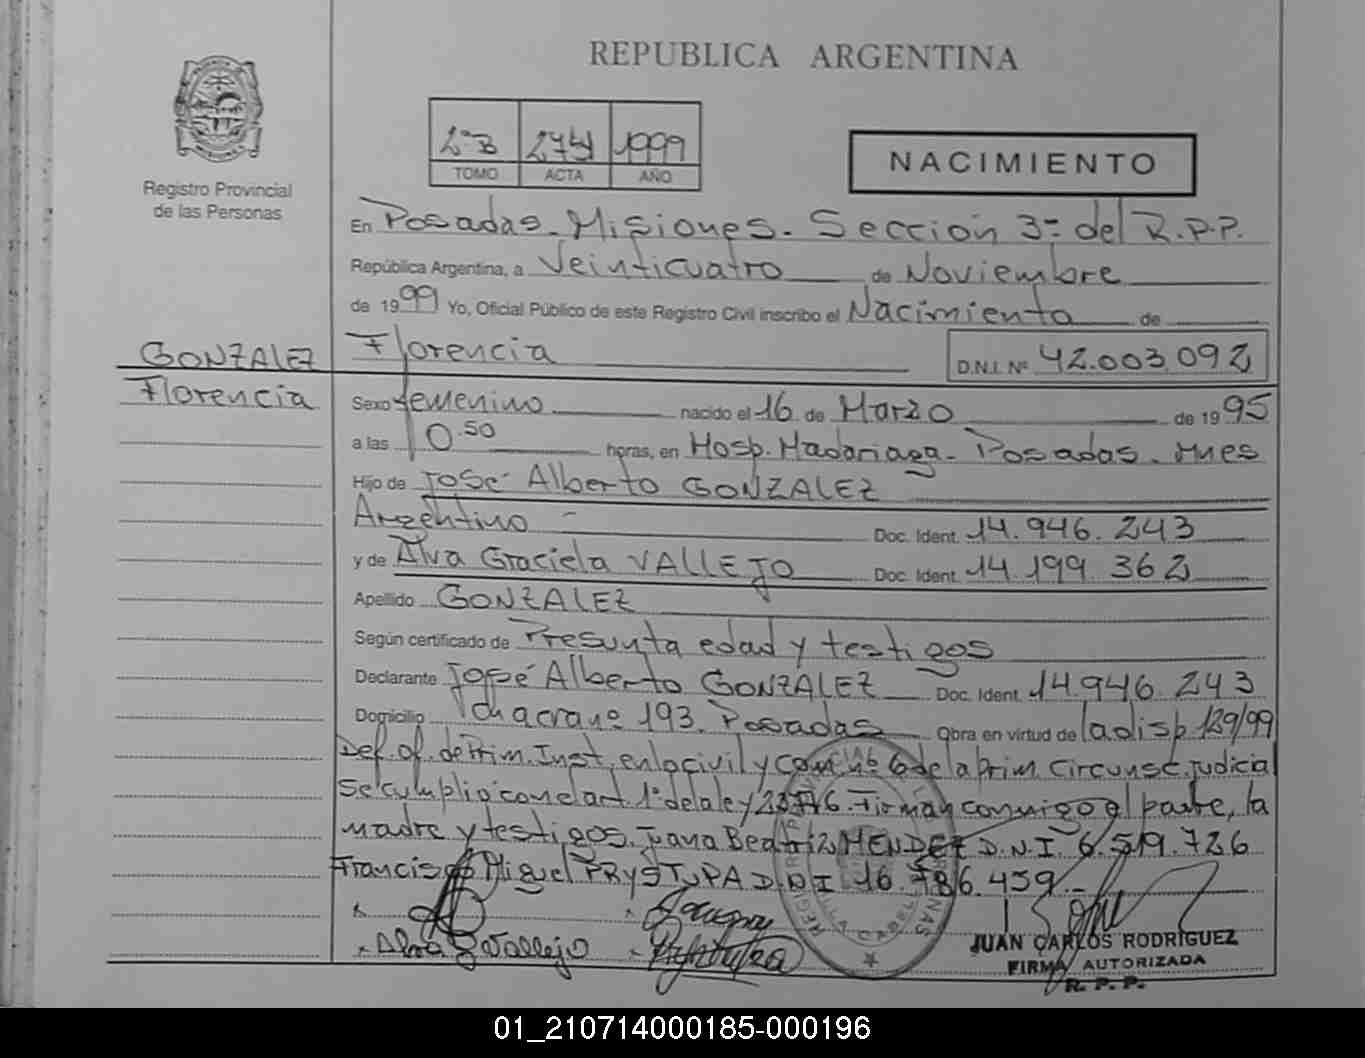 REPUBLICA ARGENTINA
2ºB 1999
TOMO ACTA AÑO
NACIMIENTO
Registro Provincial
de las Personas
En Posadas - Misiones - Sección 3ª del R.P.P.
República Argentina, a Veinticuatro de Noviembre
de 1999 Yo, Oficial Público de este Registro Civil inscribo el Nacimiento de
GONZALEZ Florencia D.N.I. Nº 42.003.092
Florencia Sexo femenino nacido el 16 de Marzo de 1995
a las 10.50 horas, en Hosp. Madariaga - Posadas - Mnes
Hijo de José Alberto GONZALEZ
Argentino - Doc. Ident. 14.946.243
y de Alva Graciela VALLEJO Doc. Ident. 14.199.362
Apellido GONZALEZ
Según certificado de Presunta edad y testigos
Declarante José Alberto GONZALEZ Doc. Ident. 14.946.243
Domicilio chacra nº 193. Posadas Obra en virtud de la disp. 129/99
Def. of. de Prim. Inst. en lo civil y com. nº 6 de la prim. circunsc. judicial
Se cumplió con el art. 1º de la ley Firman conmigo el padre, la
madre y testigos. Juana Beatriz MENDEZ D.N.I. 6.519.726
Francisco Miguel PRYSTUPA D.N.I 16.786.459 -
Alva G Vallejo
JUAN CARLOS RODRIGUEZ
FIRMA AUTORIZADA
R. P. P.
01_210714000185-000196